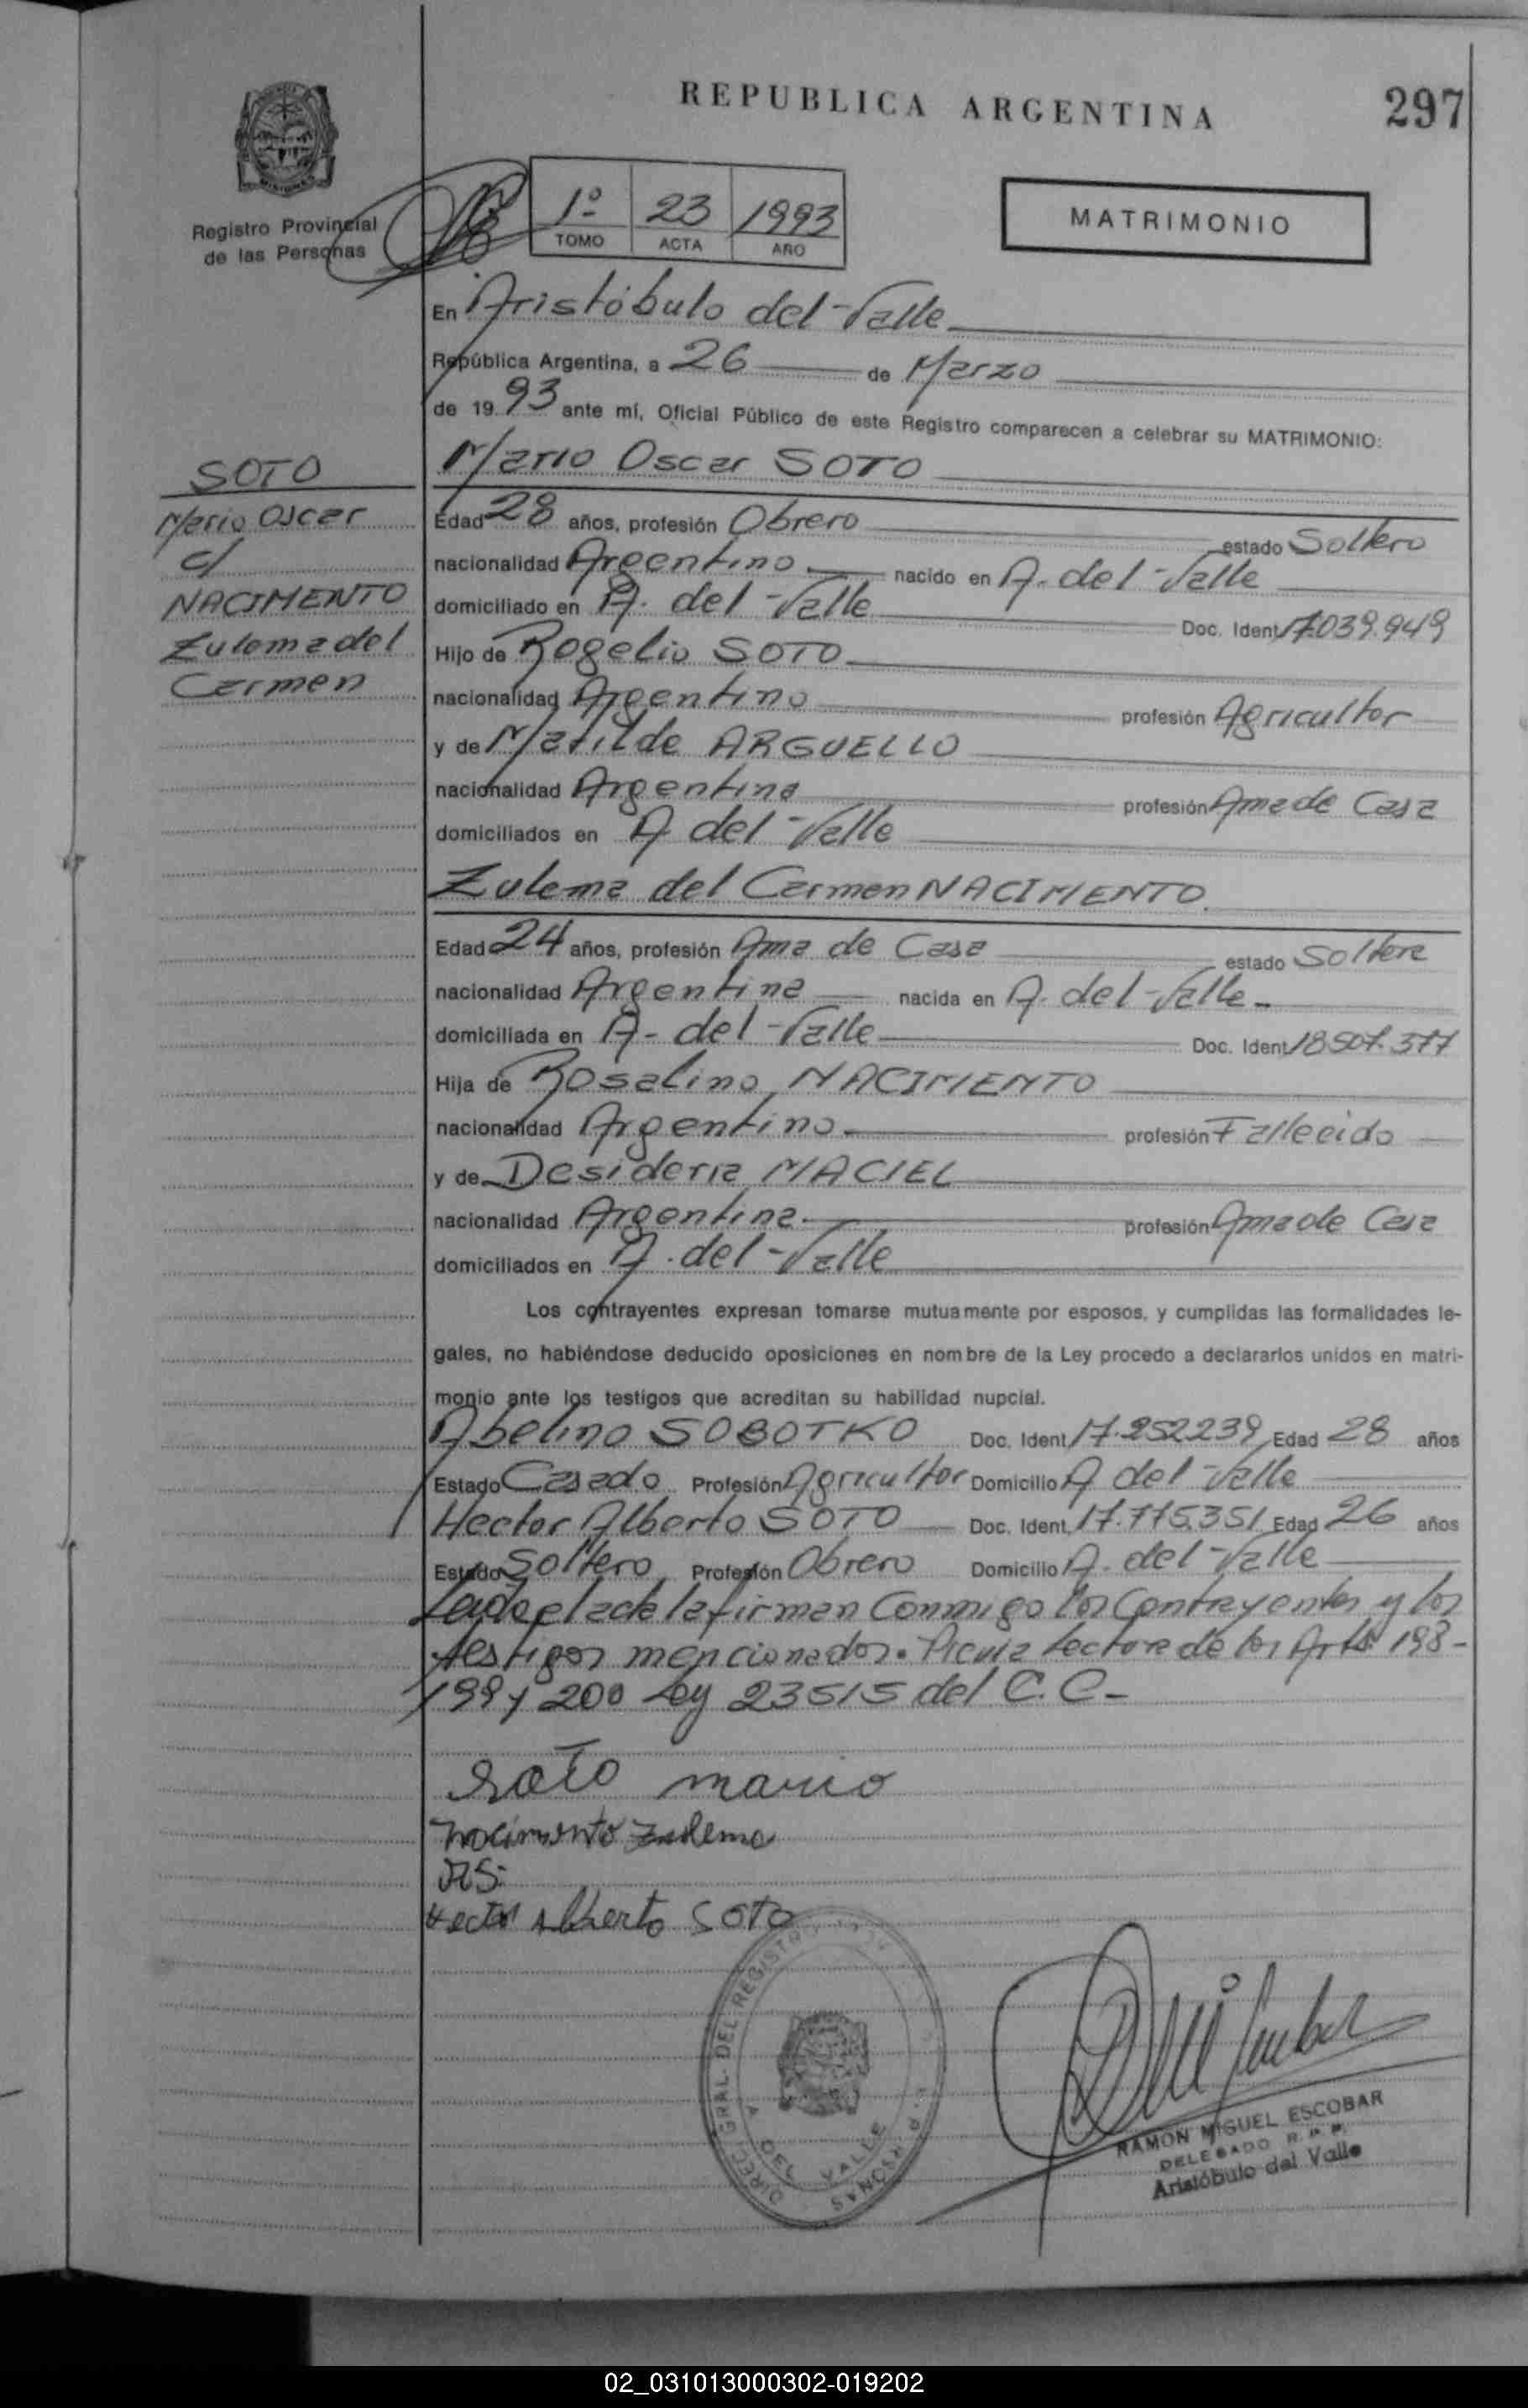 REPUBLICA ARGENTINA
297
Registro Provincial
de las Personas
1º 23 1993
TOMO ACTA AÑO
MATRIMONIO
En Aristóbulo del Valle
República Argentina, a 26 de Marzo
de 1993 ante mí, Oficial Público de este Registro comparecen a celebrar su MATRIMONIO:
Mario Oscar SOTO
SOTO
Mario Oscar
c/
NACIMENTO
Zulema del
Carmen
Edad 28 años, profesión Obrero estado Soltero
nacionalidad Argentino nacido en A. del Valle
domiciliado en A. del Valle Doc. Ident. 17.039.949
Hijo de Rogelio SOTO
nacionalidad Argentino profesión Agricultor
y de Matilde ARGUELLO
nacionalidad Argentina profesión Ama de Casa
domiciliados en A del Valle
Zulema del Carmen NACIMIENTO.
Edad 24 años, profesión Ama de Casa estado Soltera
nacionalidad Argentina nacida en A. del Valle
domiciliada en A- del Valle Doc. Ident. 18507.377
Hija de Rosalino NACIMIENTO
nacionalidad Argentino profesión Fallecido
y de Desideria MACIEL
nacionalidad Argentina profesión Ama de Casa
domiciliados en A. del Valle
Los contrayentes expresan tomarse mutuamente por esposos, y cumplidas las formalidades le-
gales, no habiéndose deducido oposiciones en nombre de la Ley procedo a declararlos unidos en matri-
monio ante los testigos que acreditan su habilidad nupcial.
Abelino SOBOTKO Doc. Ident. 17.252239 Edad 28 años
Estado Casado Profesión Agricultor Domicilio A del Valle
Hector Alberto SOTO Doc. Ident. 17.775.351 Edad 26 años
Estado Soltero Profesión Obrero Domicilio A. del Valle
Leida el acta la firman Conmigo los Contrayentes y los
testigos mencionados. Previa lectura de los Arts. 198-
199 y 200 Ley 23515 del C.C-
Soto mario
Nacimiento Zulema
AS.
Hector Alberto SOTO
DIREC. GRAL. DEL REGISTRO
PERSONAS
A. DEL VALLE
RAMON MIGUEL ESCOBAR
DELEGADO R.P.P.
Aristóbulo del Valle
02_031013000302-019202